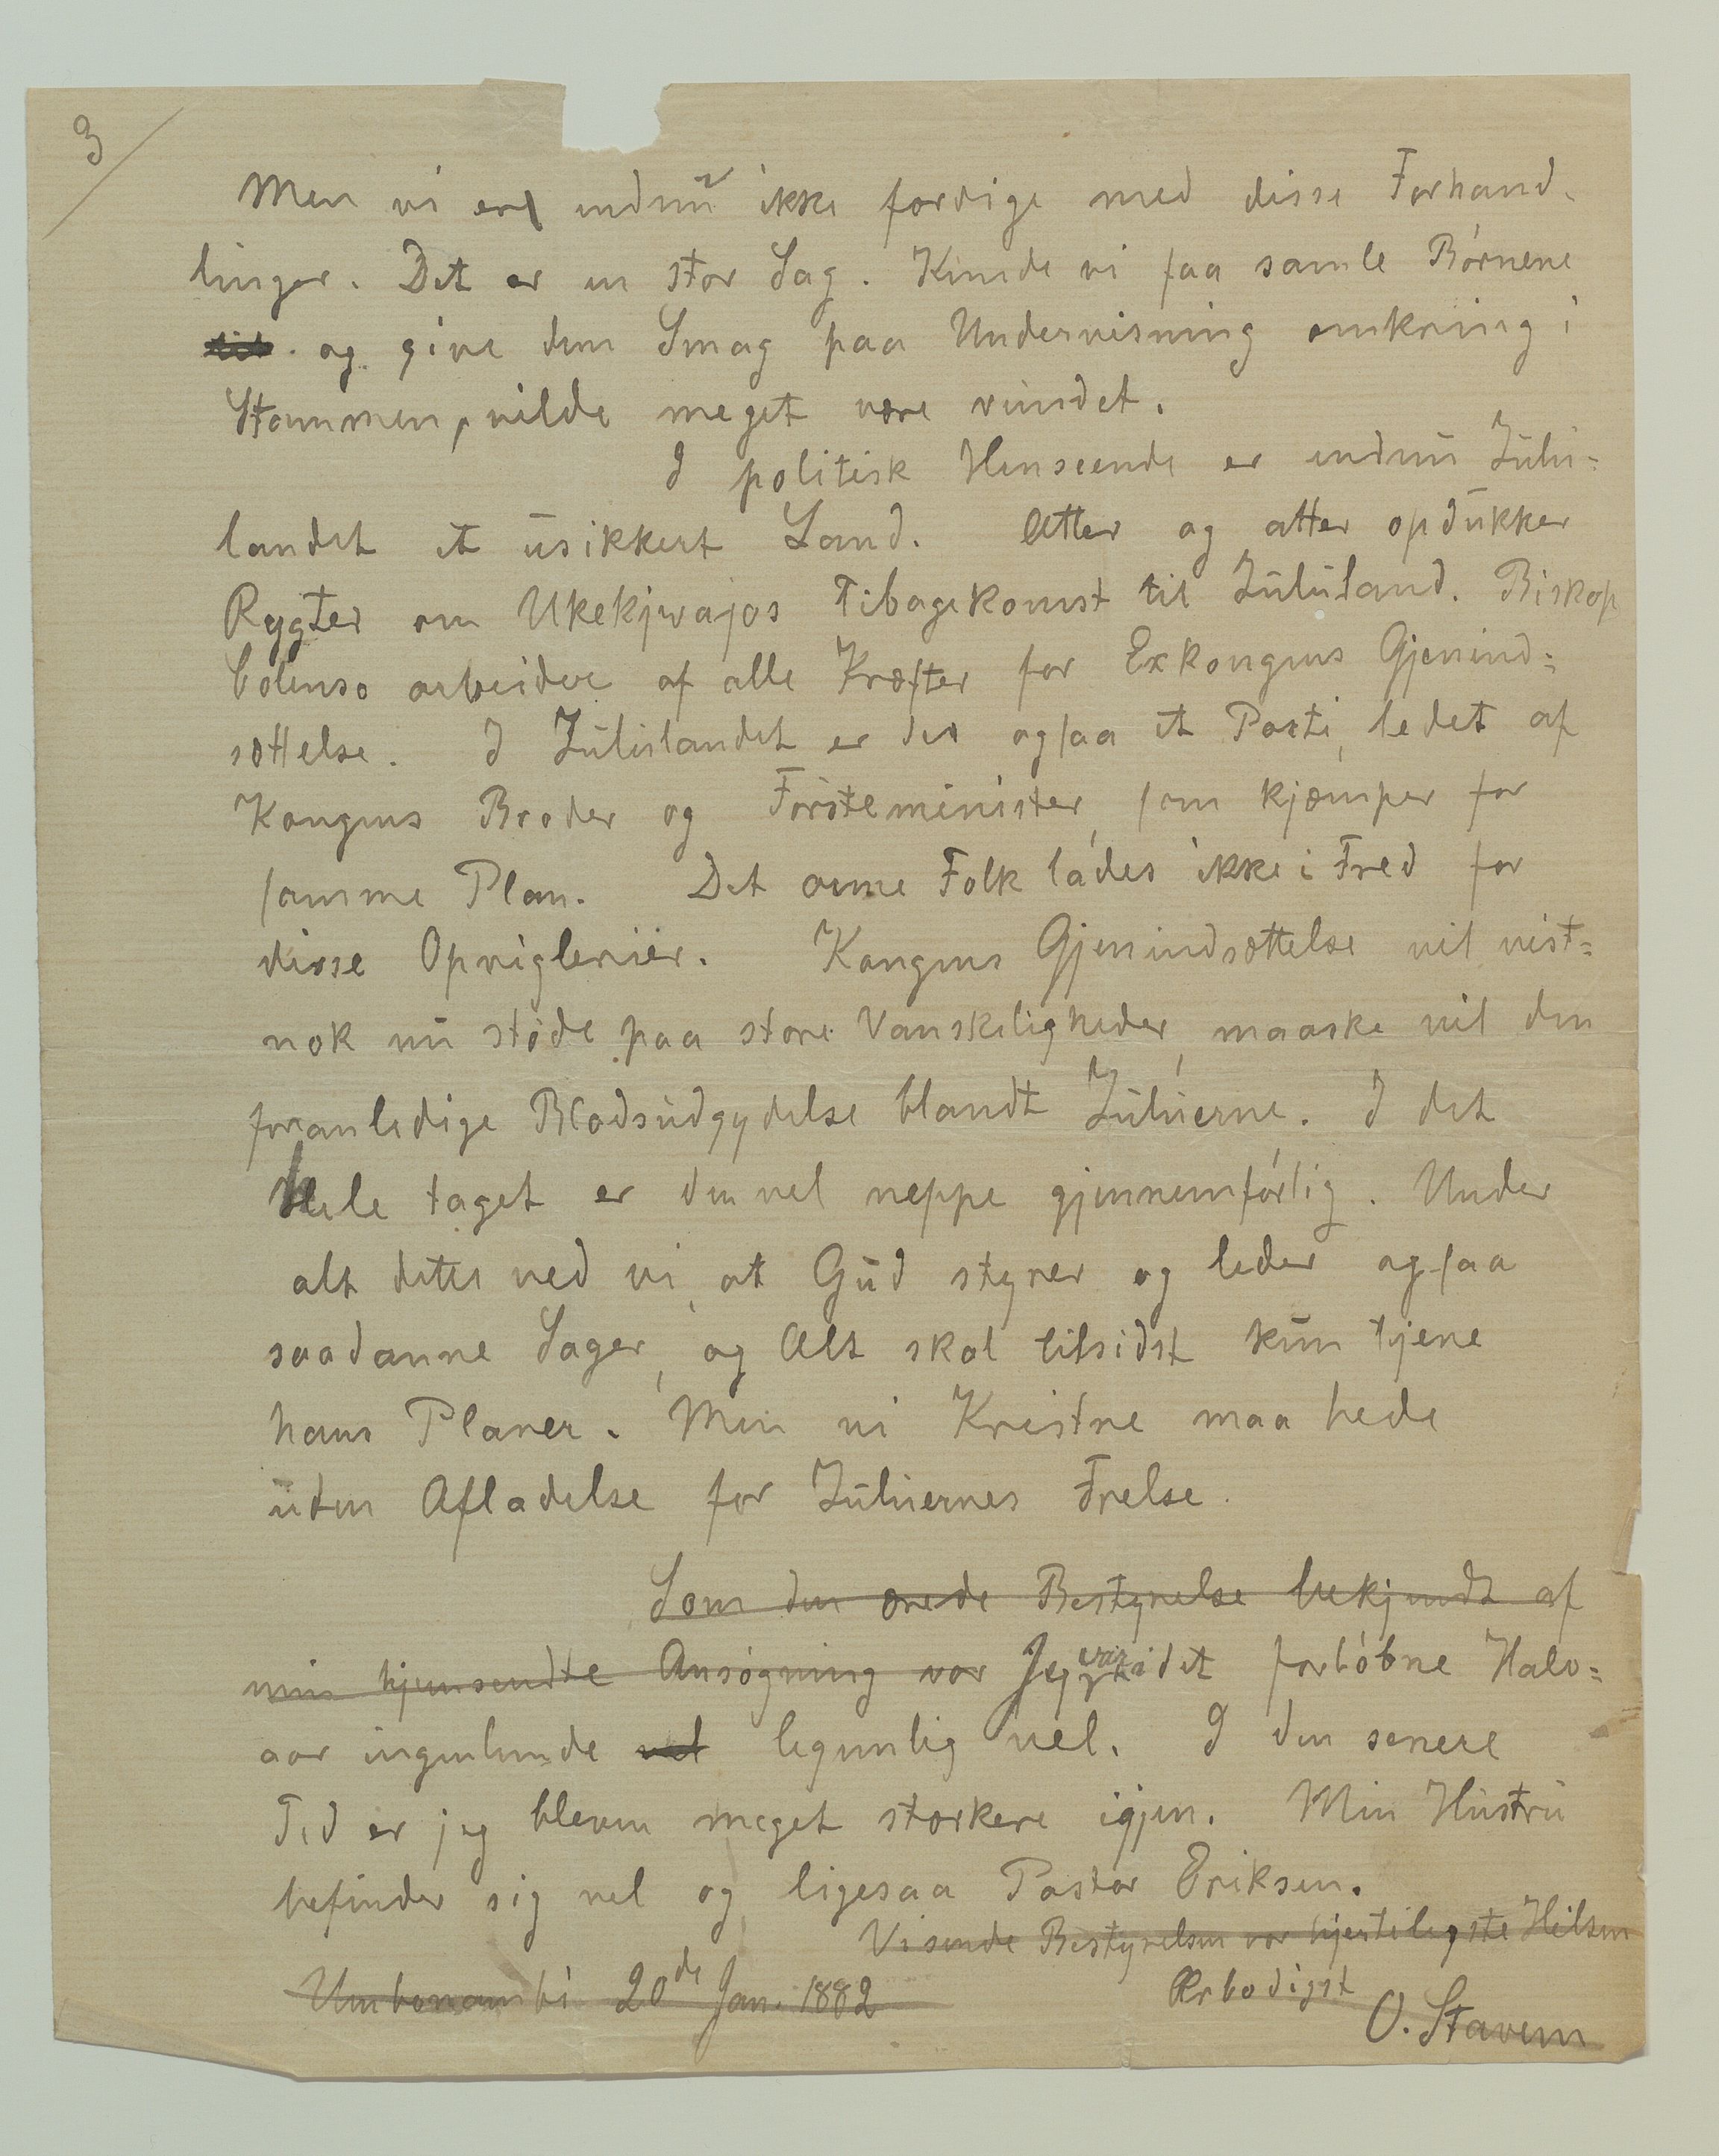 3
Men vi er endnu ikke færdige med disse Forhand-
linger. Det er en stor Sag. Kunde vi faa samle Börnene
til. og give dem Smag paa Undervisning omkring i
Stammen, vilde meget være vundet.
I politisk Henseende er endnu Zulu=
landet et usikkert Land. Atter og atter opdukker
Rygter om Ukekjwajos Tibagekomst til Zululand. Biskop
Colenso arbeider af alle Kræfter for Exkongens Gjenind=
sættelse. I Zululandet er der ogsaa et Parti, ledet af
Kongens Broder og Försteminister, som kjæmper for
samme Plan. Det arme Folk lades ikke i Fred for
disse Opviglerier. Kongens Gjenindsættelse vil vist=
nok nu støde paa store Vanskeligheder, maaske vil den
foranledige Blodsudgydelse blandt Zuluerne. I det
Hele taget er den vel neppe gjennemförlig. Under
alt dette ved vi, at Gud styrer og leder ogsaa
saadanne Sager, og Alt skal tilsidst kun tjene
hans Planer. Men vi Kristne maa bede
uden Afladelse for Zuluernes Frelse.
Som den ærede Bestyrelse bekjendt af
min hjemsendte Ansögning var Jeg var i det forlöbne Halv=
aar ingenlunde vel legemlig vel. I den senere
Tid er jeg bleven meget stærkere igjen. Min Hustru
befinder sig vel og ligesaa Pastor Eriksen.
Vi sende Bestyrelsen vor hjerteligste Hilsen
Umbonambi 20de Jan. 1882
Ærbødigst
O. Stavem